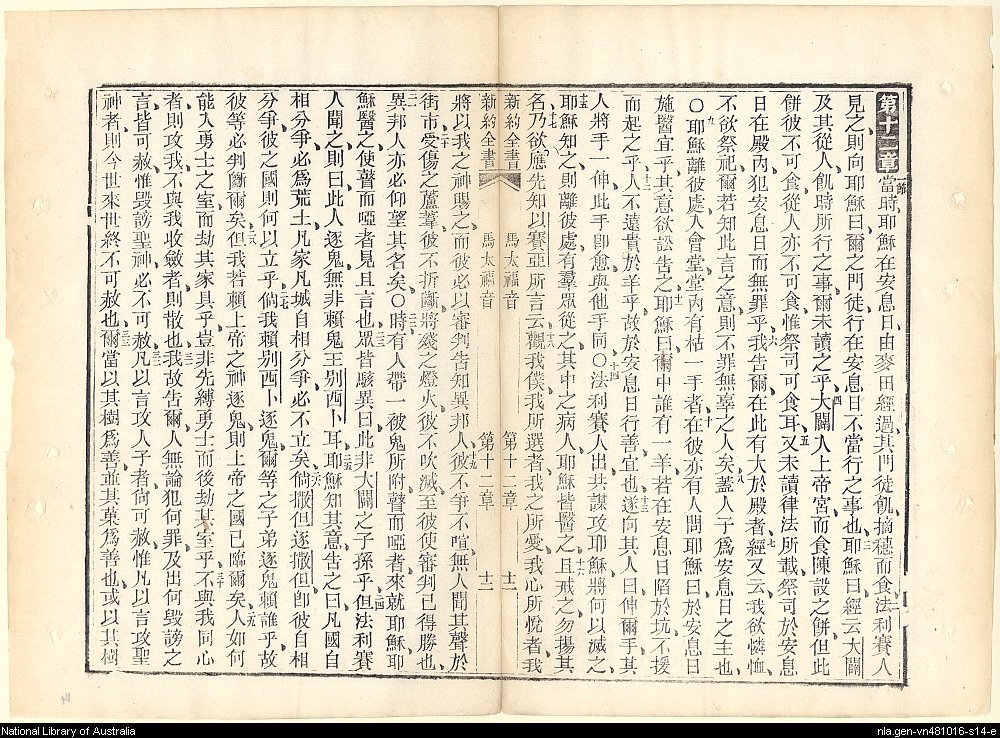 第十二章 一節 當時耶穌在安息日由麥田經過其門徒飢摘穗而食法利賽人
見之則向耶穌曰爾之門徒行在安息日不當行之事也耶穌曰經云大闢
及其從人飢時所行之事爾未讀之乎大闢入上帝宮而食陳設之餅但此
餅彼不可食從人亦不可食惟祭司可食耳又未讀律法所載祭司於安息
日在殿內犯安息日而無罪乎我告爾在此有大於殿者經又云我欲憐恤
不欲祭祀爾若知此言之意則不罪無辜之人矣蓋人子為安息日之主也
〇耶穌離彼處入會堂堂內有枯一手者在彼亦有人問耶穌曰於安息日
施醫宜乎其意欲訟告之耶穌曰爾中誰有一羊若在安息日陷於坑不援
而起之乎人不遠貴於羊乎故於安息日行善宜也遂向其人曰伸爾手其
人將手一伸此手即愈與他手同〇法利賽人出共謀攻耶穌將何以滅之
耶穌知之則離彼處有羣眾從之其中之病人耶穌皆醫之且戒之勿揚其
名乃欲應先知以賽亞所言云觀我僕我所選者我之所愛我心所悅者我
新約全書 馬太福音 第十二章 十二
新約全書 馬太福音 第十二章 十二
將以我之神賜之而彼必以審判告知異邦人彼不爭不喧無人聞其聲於
街市受傷之蘆葦彼不折斷將殘之燈火彼不吹滅至彼使審判已得勝也
異邦人亦必仰望其名矣〇時有人帶一被鬼所附瞽而啞者來就耶穌耶
穌醫之使瞽而啞者見且言也眾皆駭異曰此非大闢之子孫乎但法利賽
人聞之則曰此人逐鬼無非賴鬼王别西卜耳耶穌知其意告之曰凡國自
相分爭必為荒土凡家凡城自相分爭必不立矣倘撒但逐撒但即彼自相
分爭彼之國則何以立乎倘我賴别西卜逐鬼爾等之子弟逐鬼賴誰乎故
彼等必判斷爾矣但我若賴上帝之神逐鬼則上帝之國已臨爾矣人如何
能入勇士之室而劫其家具乎豈非先縛勇士而後劫其室乎不與我同心
者則攻我不與我收斂者則散也我故告爾人無論犯何罪及出何毀謗之
言皆可赦惟毀謗聖神必不可赦凡以言攻人子者尚可赦惟凡以言攻聖
神者則今世來世終不可赦也爾當以其樹為善並其菓為善也或以其樹
National Library of Australia
nla.gen-vn481016-s14-e